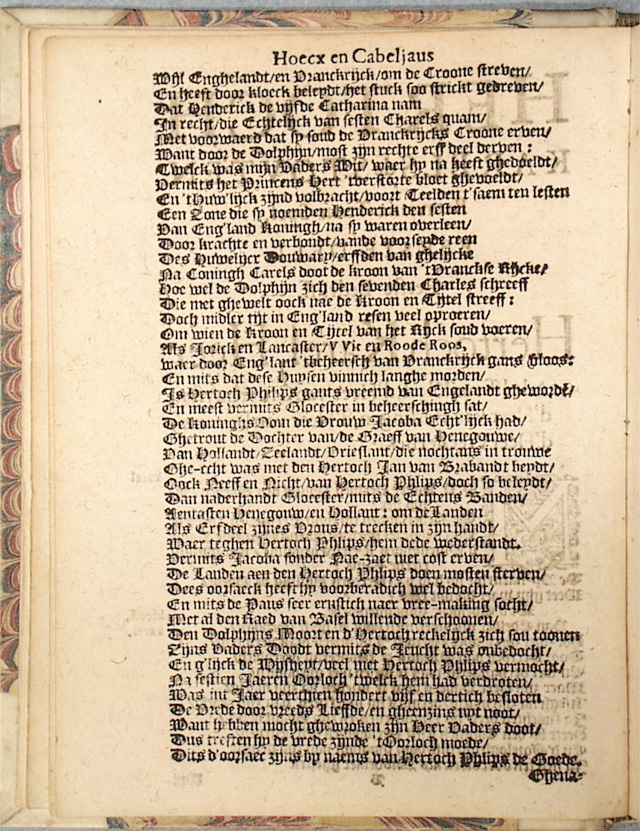 Hoecx en Cabeljaus
Wijl Enghelandt/en Vranckrijck/om de Croone streven/
En heeft door kloeck beleydt/het stuck soo strickt gedreven/
Dat Henderick de vijfde Catharina nam
In recht/die Echtelijck van sesten Charels quam/
Met voorwaerd dat sy soud de Vranckrijcks Croone erven/
Want door de Dolphijn/most zijn rechte erf deel derven :
Twelck was mijn Vaders Wit/ waer hy na heeft ghedoeldt/
Vermits het Princens Hert 'tverstorte bloet ghevoeldt/
En 'thuw'lijck zijnd volbracht/voort Teelden t'saem ten lesten
Een Zone die sy noemden Henderick den sesten
Van Eng'land Koningh/na sy waren overleen/
Door krachte en verbondt/vande voorseyde reen
Des Huwelijcx Douwary/erffden van ghelijcke
Na Coningh Carels doot de kroon van 'tVranckse Rijcke/
Hoe wel de Dolphijn zich den sevenden Charles schreeff
Die met ghewelt oock nae de Kroon en Tijtel streeff :
Doch midler tijt in Eng'land resen veel oproeren/
Om wien de Kroon en Tijtel van het Rijck soud voeren/
Als Jorick en Lancaster/V Vit en Roode Roos,
waer door Eng'lant 'tbeheersch van Vranckrijck gans bloos:
En mits dat dese Huysen vinnich langhe morden/
Is Hertoch Philips gants vreemd van Engelandt ghewordē/
En meest vermits Glocester in beheerschingh sat/
De Koninghs Oom die Vrouw Jacoba Echt'lijck had/
Ghetrout de Dochter van/de Graeff van Henegouwe/
Van Hollandt/Zeelandt/Vrieslant/die nochtans in trouwe
Ghe-echt was met den Hertoch Jan van Brabandt beydt/
Oock Neeff en Nicht/van Hertoch Phlips/doch so beleydt/
Dan naderhandt Glocester/mits de Echtens Banden/
Aentasten Henegouw/en Hollant : om de Landen
Als Erfdeel zijnes Vrous/te trecken in zijn handt/
Waer teghen Hertoch Phlips/hem dede wederstandt.
Vermits Jacoba sonder Nae-zaet niet cost erven/
De Landen aen den Hertoch Phlips doen mosten sterven/
Dees oorsaeck heeft hy voorberadich wel bedocht/
En mits de Paus seer ernstich naer vree-making socht/
Met al den Raed van Basel willende verschoonen/
Den Dolphijns Moort en d'Hertoch reckelijck zich sou toonen
Zijns Vaders Doodt vermits de Jeucht was onbedocht/
En g'lijck de Wijsheyt/veel met Hertoch Philips vermocht/
Na sestien Jaeren Oorloch 'twelck hem had verdroten/
Was int Jaer veerthien hondert vijf en dertich besloten
De Vrede door vreeds Lieffde/en gheenzins uyt noot/
Want hebben mocht ghewroken zijn Heer Vaders doot/
Dus treften hy de vrede zijnde 'tOorloch moede/
Dits d'oorsaec zijns by naems van Hertoch Phlips de Goede.
Ghena-